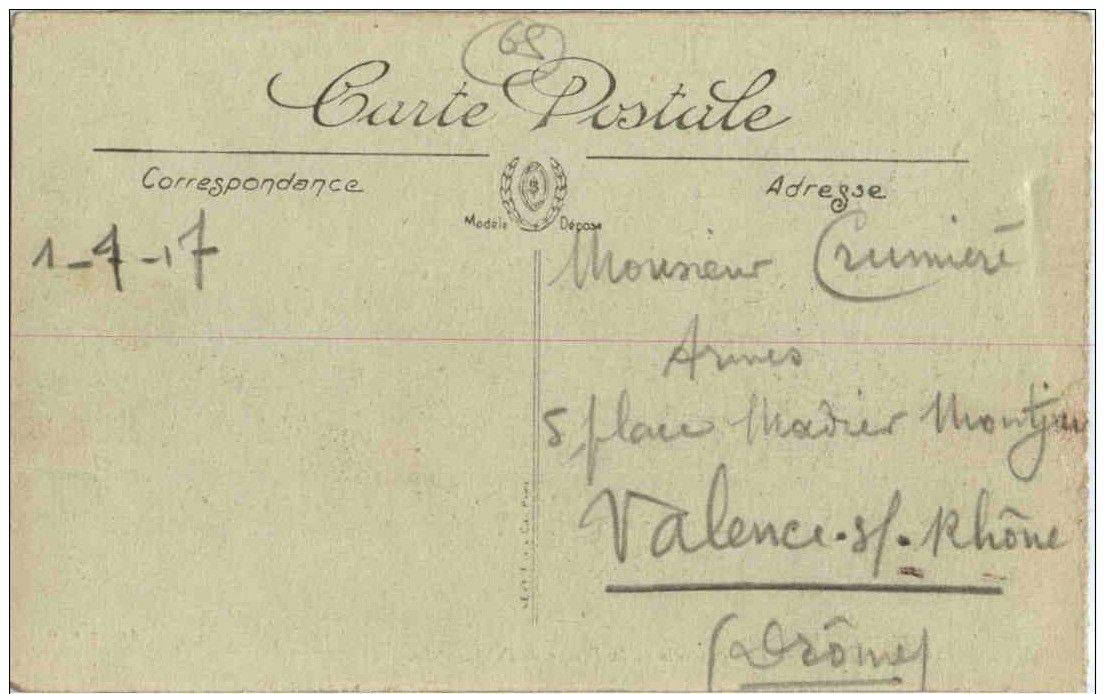 65
Carte Postale
Correspondance
Adresse
Modèle Déposé
1-4-17
Monsieur Crumière
Armes
5, place Madier Montjau
Valence-s/-Rhône
(Drôme)